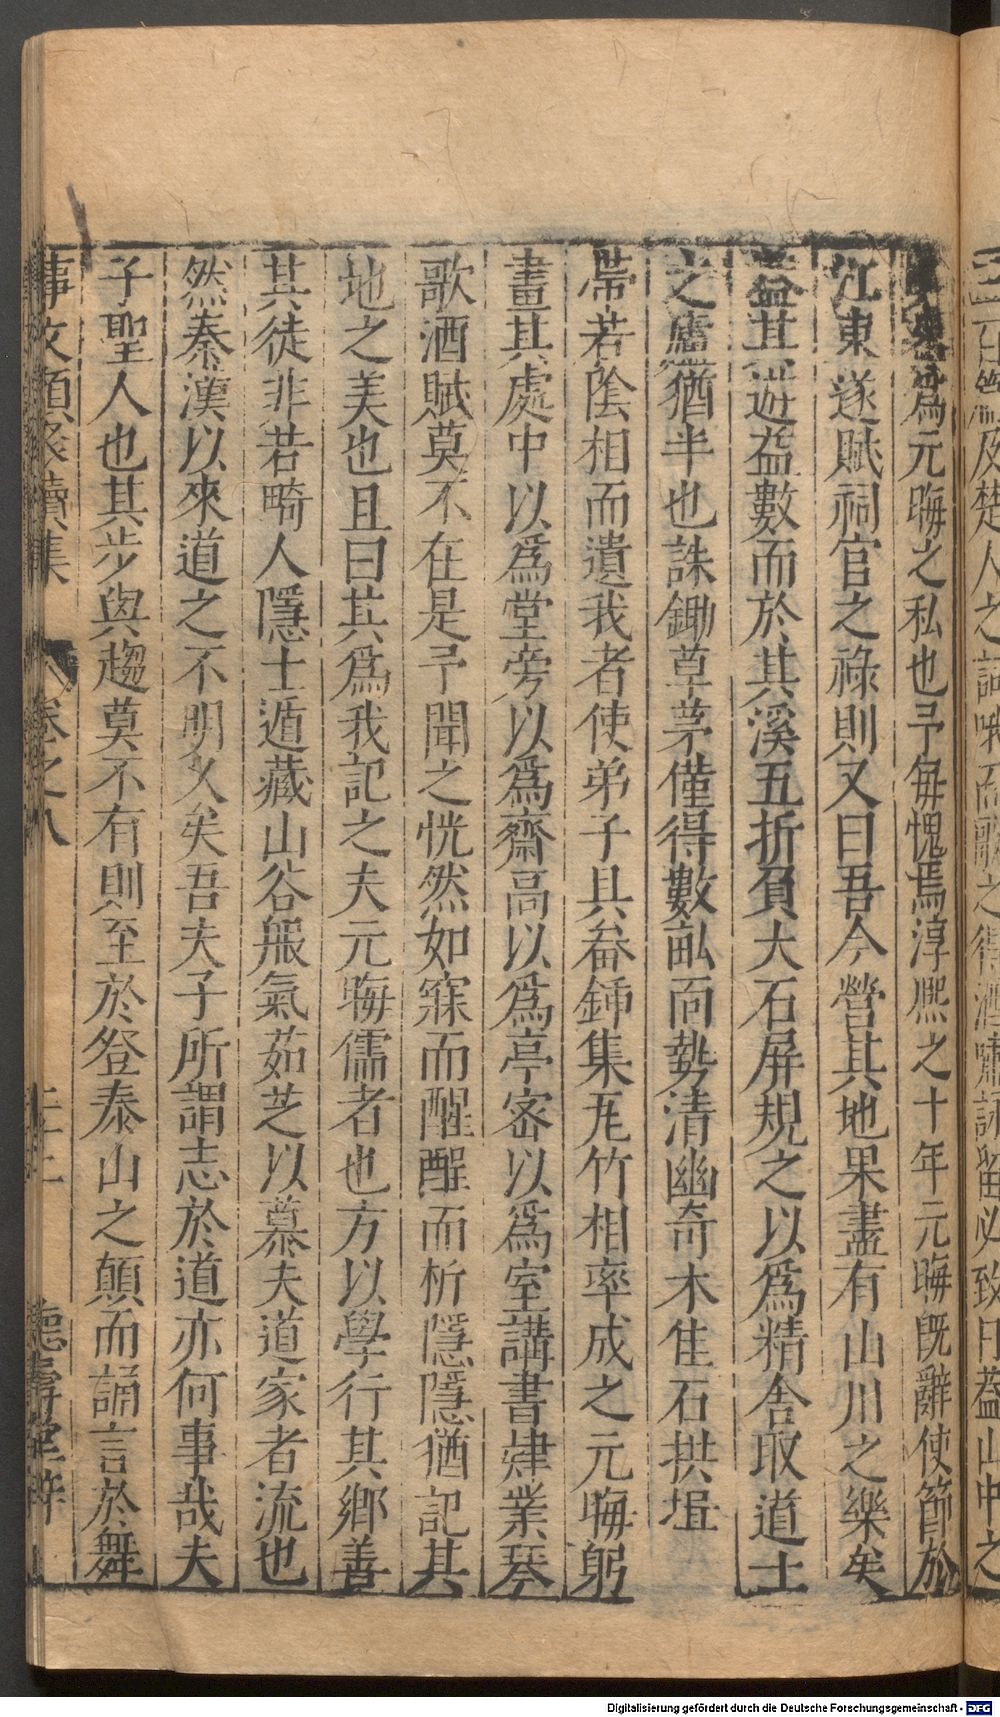 爲元晦之私也予每愧焉淳熈之十年元晦旣辭使節於
江東遂賦祠官之祿則又曰吾今營其地果盡有山川之樂矣
益其遊益數而於其溪五折負大石屏規之以爲精舍取道士
之廬猶半也誅鋤草茅僅得數畝面勢清幽奇木佳石拱揖
帶若陰相而遺我者使弟子具畚鍤集瓦竹相率成之元晦躬
畫其處中以爲堂旁以爲齋高以爲亭宻以爲室講書肄業琴
歌酒賦莫不在是予聞之恍然如寐而醒醒而析隱隱猶記其
地之美也且曰其爲我記之夫元晦儒者也方以學行其鄉善
其徒非若畸人隱士遁藏山谷服氣茹芝以慕夫道家者流也
然秦漢以來道之不明久矣吾夫子所謂志於道亦何事哉夫
子聖人也其步與趨莫不有則至於登泰山之顛而誦言於舞
事文類聚續集 卷之八
Digitalisierung gefördert durch die Deutsche Forschungsgemeinschaft - DFG